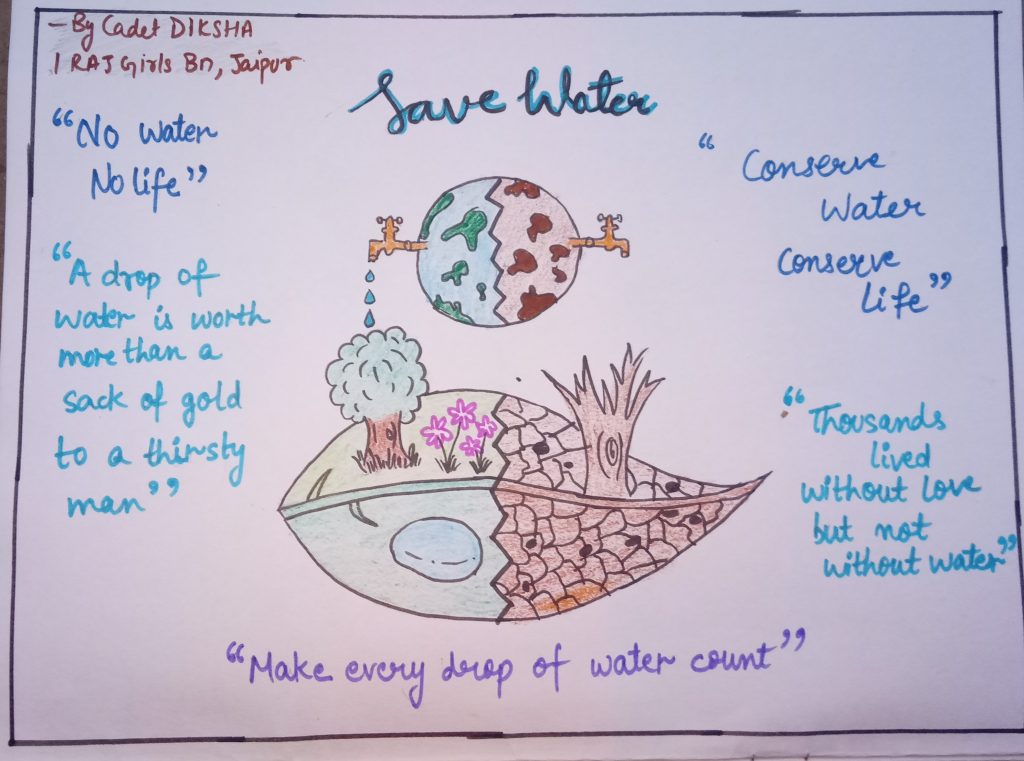 -By Cadet DIKSHA
1 RAJ Girls Bn, Jaipur
Save Water
"No water
No life"
"A drop of
water is worth
more than a
sack of gold
to a thirsty
man"
"Conserve
Water
Conserve
Life"
"Thousands
lived
without love
but not
without water"
"Make every drop of water count"